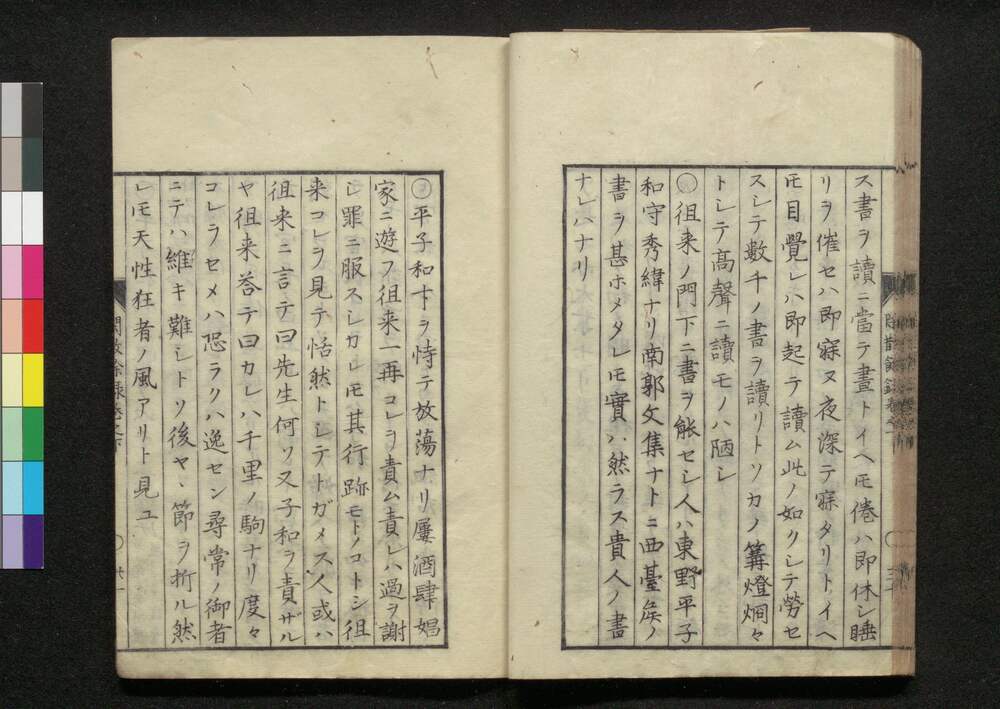 ス書ヲ讀ニ當テ晝トイヘㇳモ倦ハ即休シ睡
リヲ催セハ即寐ヌ夜深テ寐タリトイヘ
ㇳモ目覺レハ即起テ讀ム此ノ如クシテ勞セ
スシテ數千ノ書ヲ讀リトソカノ篝燈烱々
トシテ高聲ニ讀モノハ陋シ
○徂来ノ門下ニ書ヲ能セシ人ハ東野平子
和守秀緯ナリ南郭文集ナトニ西臺矦ノ
書ヲ甚ホメタレㇳモ實ハ然ラス貴人ノ書
ナレハナリ
○平子和才ヲ恃テ放蕩ナリ屢酒肆娼
家ニ遊フ徂来一再コレヲ責ム責レハ過ヲ謝
シ罪ニ服スシカレㇳモ其行跡モトノコトシ徂
来コレヲ見テ恬然トシテトガメス人或ハ
徂来ニ言テ曰先生何ソ又子和ヲ責ザル
ヤ徂来荅テ曰カレハ千里ノ駒ナリ度々
コレヲセメハ恐ラクハ逸セン尋常ノ御者
ニテハ維キ難シトソ後ヤヽ節ヲ折ル然
レㇳモ天性狂者ノ風アリト見ユ